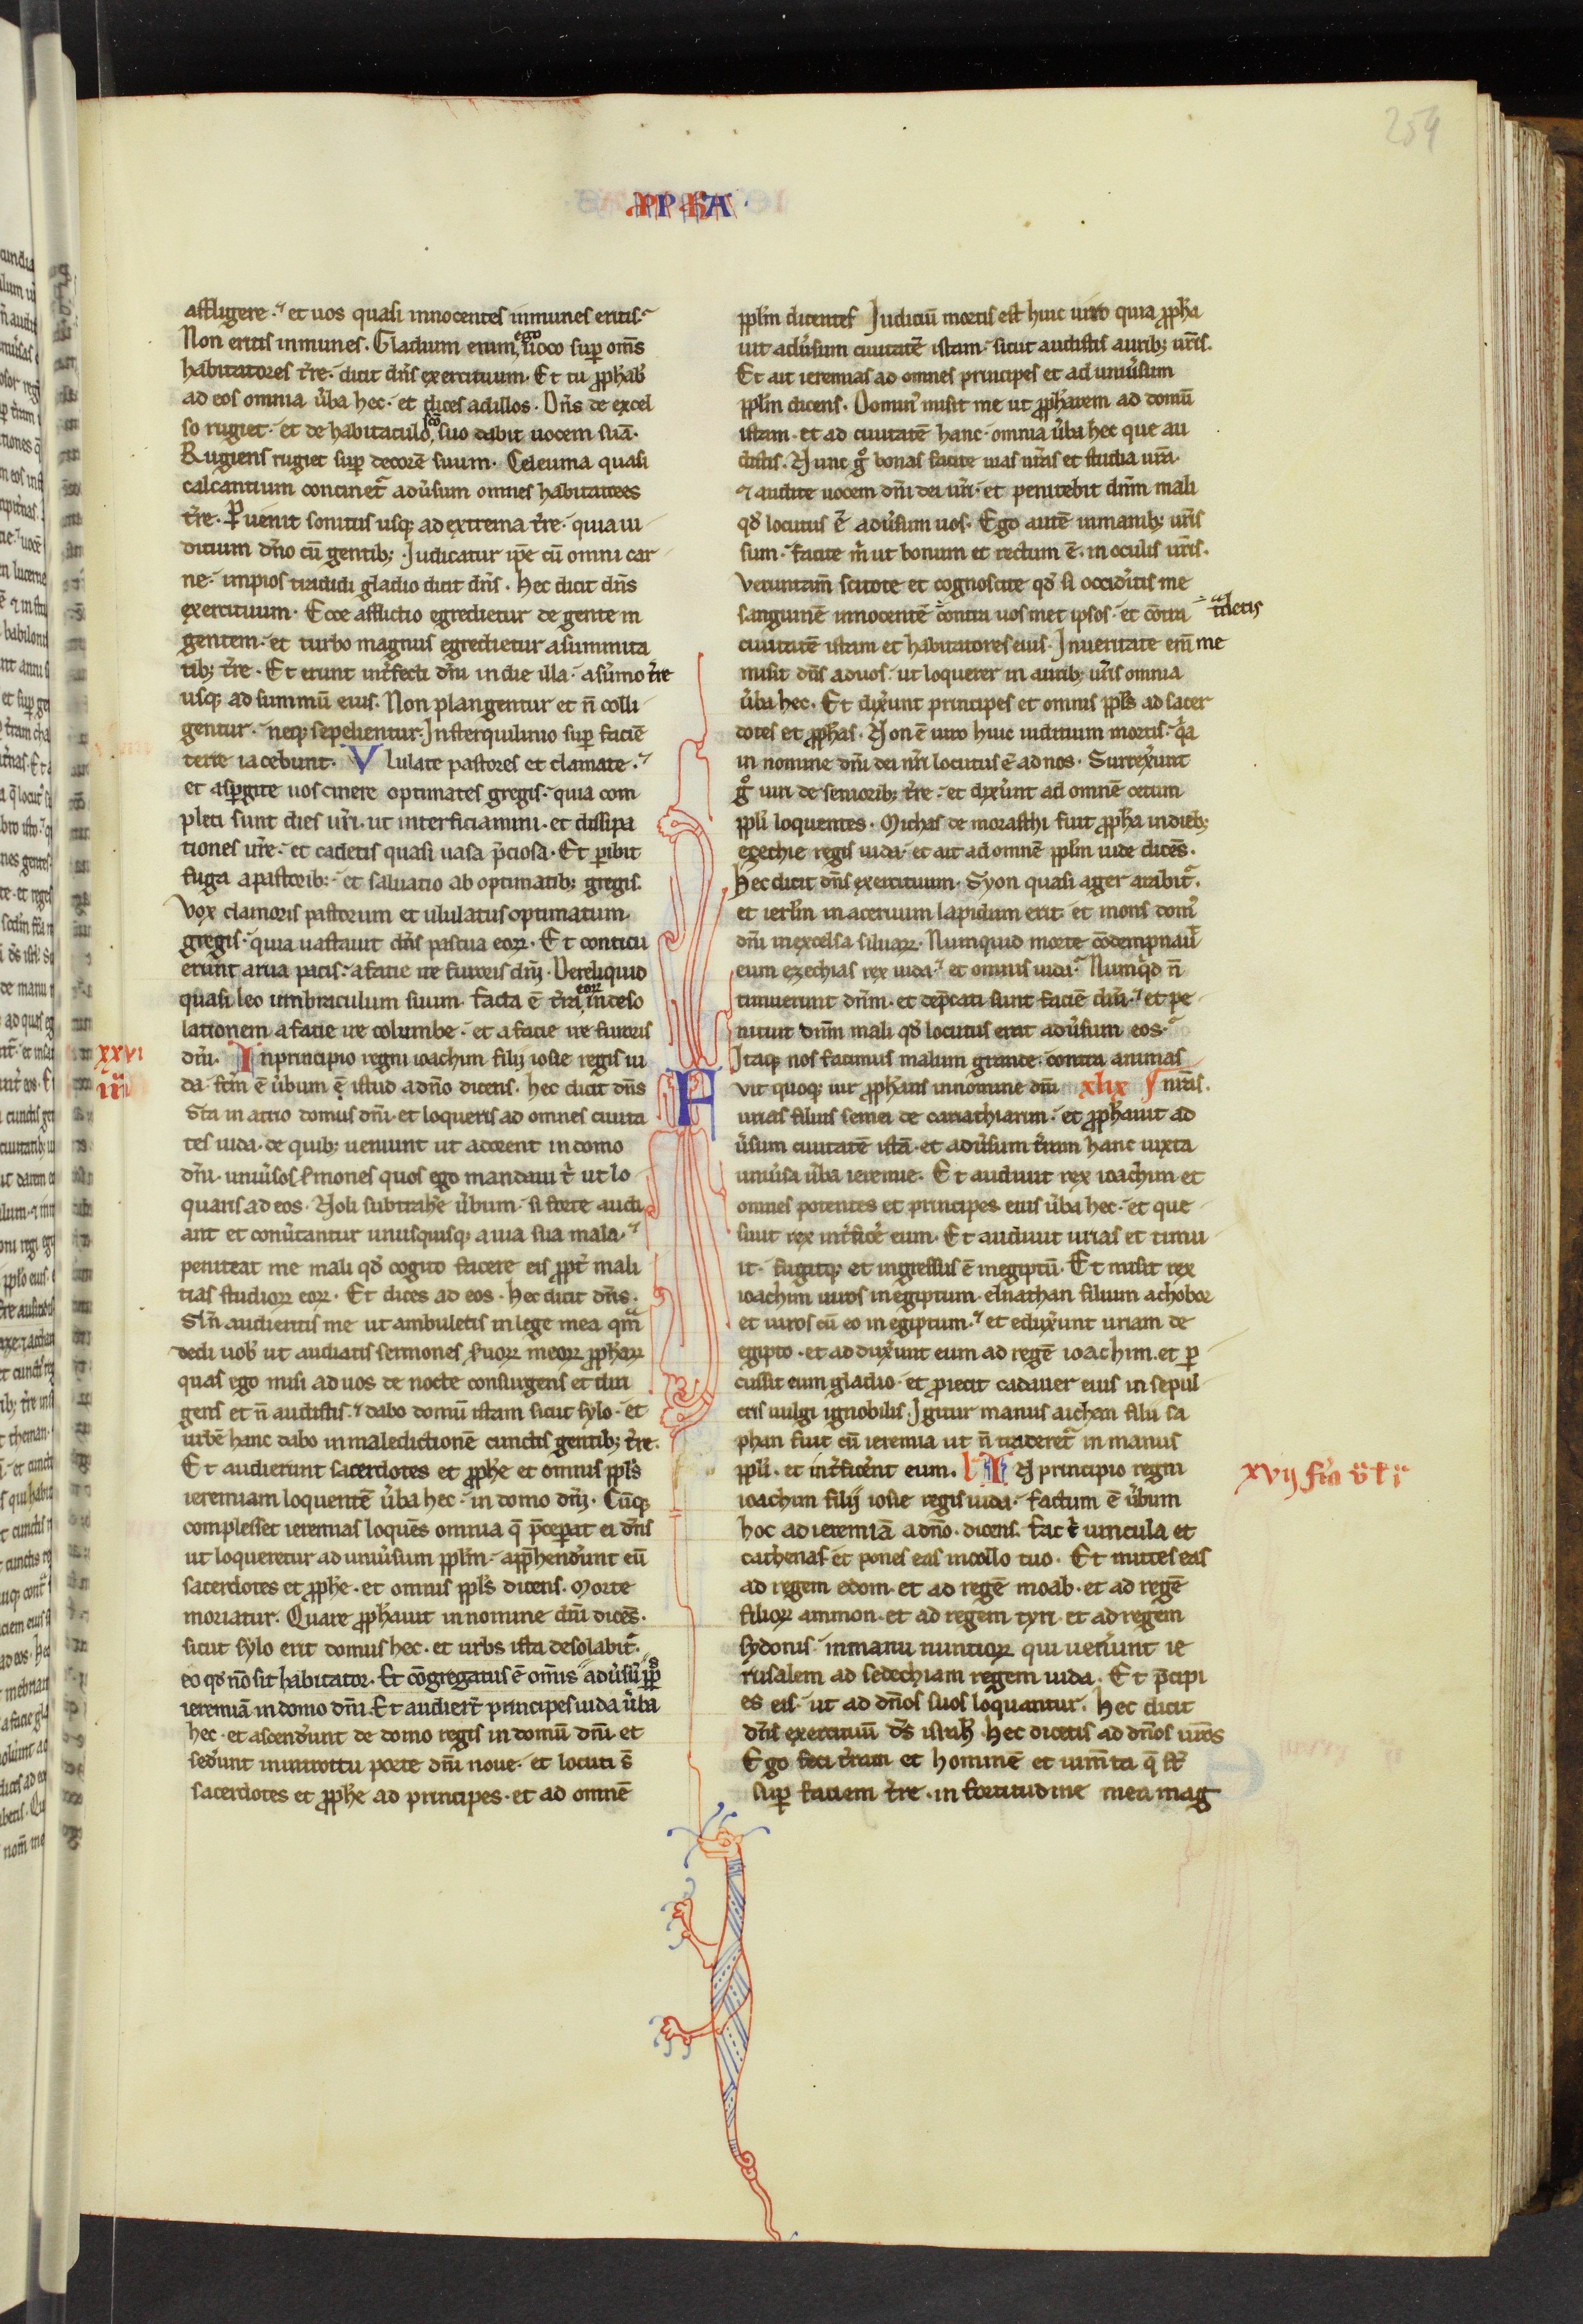 254
PPHA
affligere. et uos quasi innocentes inmunes eritis.
Non eritis inmunes. Gladium enim ego uoco sup om̅s
habitatores t̅re. dicit dn̅s exercituum. Et tu p̅phab̅
ad eos omnia ũba hec. et dices ad illos. Dn̅s de excel
so rugiet. et de habitaculo sc̅o suo dabit uocem suā.
Rugiens rugiet sup decorē suum. Celeuma quasi
calcantium concinet᷑ adũsum omnes habitatores
t̅re. Puenit sonitus usq; ad extrema t̅re. quia iu
dicium dn̅o cū gentib; Iudicatur ip̅e cū omni car
ne. impios tradidi gladio dicit dn̅s. Hec dicit dn̅s
exercituum. Ecce afflictio egredietur de gente in
gentem. et turbo magnus egredietur a summita
tib; t̅re. Et erunt int̅fecti dn̅i in die illa. a sūmo t̅re
usq; ad summū eius. Non plangentur et n̅ colli
gentur. neq; sepelientur. In sterquilinio sup faciē
terre iacebunt. Vlulate pastores et clamate.
et aspgite uos cinere optimates gregis. quia com
pleti sunt dies ur̅i. ut interficiamini. et dissipa
tiones ur̅e. et cadetis quasi uasa p̅ciosa. Et pibit
fuga a pastorib; et saluatio ab optimatib; gregis.
Vox clamoris pastorum et ululatus optimatum
gregis. quia uastauit dn̅s pascua eoꝝ. Et conticu
erunt arua pacis. a facie ire furoris dn̅i. Dereliquid
quasi leo umbraculum suum. facta ē t̅ra eoꝝ in deso
lationem a facie ire columbe. et a facie ire furoris
dn̅i. In principio regni ioachim filij iosie regis iu
xxvi
da. fcm̅ ē ũbum istud a dn̅o dicens. Hec dicit dn̅s
Sta in atrio domus dn̅i. et loqueris ad omnes ciuita
tes iuda. de quib; ueniunt ut adorent in domo
dn̅i. uniũsos s̅mones quos ego mandaui t̅ ut lo
quaris ad eos. Noli subtrahe ũbum. si forte audi
ant et conũtantur unusquisq; a uia sua mala.
peniteat me mali qd̅ cogito facere eis ppt̅ mali
tias studioꝝ eoꝝ. Et dices ad eos. Hec dicit dn̅s.
Si n̅ audieritis me ut ambuletis in lege mea qm̅
dedi uob̅ ut audiatis sermones s̅uoꝝ meoꝝ p̅phaꝝ
quas ego misi ad uos de nocte consurgens et diri
gens et n̅ audistis. dabo domū istam sicut sylo. et
urbē hanc dabo in maledictionē cunctis gentib; t̅re.
Et audierunt sacerdotes et p̅phe et omnis ppl̅s
ieremiam loquentē ũba hec. in domo dn̅i. Cūq;
complesset ieremias loquēs omnia q̄ p̅cepat ei dn̅s
ut loqueretur ad uniũsum pplm̅. app̅hendũnt eū
sacerdotes et p̅phe. et omnis ppl̅s dicens. Morte
moriatur. Quare p̅phauit in nomine dn̅i dicēs.
sicut sylo erit domus hec. et urbs ista desolabit᷑.
eo qd̅ nō sit habitator. Et cōgregatus ē om̅is ppl̅s adũsū
ieremiā in domo dn̅i. Et audiert̅ principes iuda ũba
hec. et ascendũnt de domo regis in domū dn̅i et
sedũnt in introitu porte dn̅i noue. et locuti s̅
sacerdotes et p̅phe ad principes. et ad omnē
pplm̅ dicentes Iudiciū mortis est huic uiro quia p̅pha
uit adũsum ciuitatē istam. sicut audistis aurib; ur̅is.
Et ait ieremias ad omnes principes et ad uniũsum
pplm̅ dicens. Domin᷒ misit me ut p̅pharem ad domū
istam. et ad ciuitatē hanc. omnia ũba hec que au
distis. Nunc g̊ bonas facite uias ur̅as et studia ur̅a.
et audite uocem dn̅i dei ur̅i. et penitebit dn̅m mali
qd̅ locutus ē adũsum uos. Ego autē in manib; ur̅is
sum. facite m̅ ut bonum et rectum ē. in oculis ur̅is.
Veruntam̅ scitote et cognoscite qd̅ si occidĩtis me
sanguinē innocentē t̅detis contra uos met ipsos. et cōtra
ciuitatē istam et habitatores eius. In ueritate em̅ me
misit dn̅s ad uos. ut loquerer in aurib; ur̅is omnia
ũba hec. Et dixũnt principes et omnis ppl̅s ad sacer
dotes et p̅phas. Non ē uiro huic iudicium mortis. q̅a
in nomine dn̅i dei nr̅i locutus ē ad nos. Surrexũnt
g̊ uiri de seniorib; t̅re. et dixũnt ad omnē cetum
ppl̅i loquentes. Michas de morasthi fuit p̅pha in dieb;
ezechie regis iuda. et ait ad omnē pplm̅ iude dicēs.
Hec dicit dn̅s exercituum. Syon quasi ager arabit᷑.
et ierl̅m in aceruum lapidum erit. et mons dom᷒
dn̅i in excelsa siluaꝝ. Numquid morte cōdempnau̅
eum ezechias rex iuda. et omnis iuda. Numq̅d n̅
timuerunt dn̅m. et dep̅cati sunt faciē dn̅i. et pe
nituit dn̅m mali qd̅ locutus erat adũsum eos.
Itaq; nos facimus malum grande. contra animas
nr̅as. xlix Fuit quoq; uir p̅phans in nomine dn̅i
urias filius semei de cariathiarim. et p̅phauit ad
ũsum ciuitatē istā. et adũsum t̅ram hanc iuxta
uniũsa ũba ieremie. Et audiuit rex ioachim et
omnes potentes et principes eius ũba hec. et que
siuit rex int̅ficẽ eum. Et audiuit urias et timu
it. fugitq; et ingressus ē in egiptū. Et misit rex
ioachim uiros in egiptum. elnathan filium achobor
et uiros cū eo in egiptum. et eduxũnt uriam de
egipto. et adduxũnt eum ad regē ioachim. et p
cussit eum gladio. et proiecit cadauer eius in sepul
cris uulgi ignobilis. Igitur manus aicham filii sa
phan fuit cū ieremia ut n̅ traderet᷑ in manus
ppl̅i. et int̅ficẽnt eum. l IN principio regni
xvij
ioachim filij iosie regis iuda. factum ē ũbum
hoc ad ieremiā a dn̅o. dicens. Fac t̅ uincula et
cathenas et pones eas in collo tuo. Et mittes eas
ad regem edom. et ad regē moab. et ad regē
filioꝝ ammon. et ad regem tyri. et ad regem
sydonis. in manu nuntioꝝ qui uenĩunt ie
rusalem ad sedechiam regem iuda. Et p̅cipi
es eis. ut ad dn̅os suos loquantur. Hec dicit
dn̅s exercituū ds̅ isrl̅. Hec dicetis ad dn̅os ur̅os
Ego feci t̅ram et hominē et ium̅ta q̄ st̅
sup faciem t̅re. in fortitudine mea mag